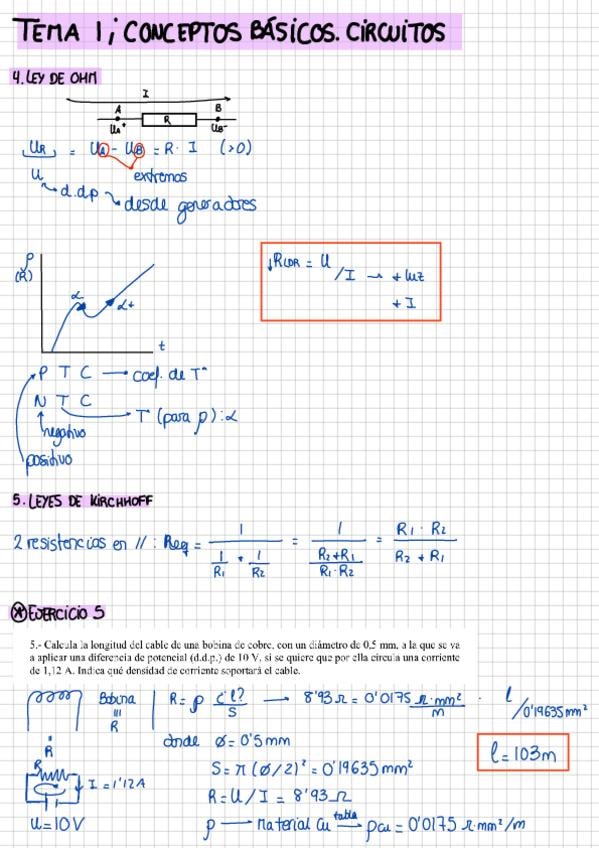 TEMA 1; CONCEPTOS BÁSICOS. CIRCUITOS
4. LEY DE OHM
I
A B
R
UA+ UB-
UR = UA - UB = R · I (>0)
U extremos
d.d.p desde generadores
ρ
(R)
α
α+
t
↓RLDR = U/I → + luz
+ I
P T C → coef. de Tª
N T C
Tª (para ρ): α
negativo
positivo
5. LEYES DE KIRCHHOFF
2 resistencias en // : Req = 1 / (1/R1 + 1/R2) = 1 / ((R2+R1)/(R1·R2)) = R1 · R2 / (R2 + R1)
* EJERCICIO 5
5.- Calcula la longitud del cable de una bobina de cobre, con un diámetro de 0,5 mm, a la que se va
a aplicar una diferencia de potencial (d.d.p.) de 10 V, si se quiere que por ella circula una corriente
de 1,12 A. Indica qué densidad de corriente soportará el cable.
Bobina
≡
R
R = ρ ¿l?/S → 8'93 Ω = 0'0175 Ω·mm²/m · l/0'19635 mm²
R
donde ø = 0'5mm
l = 103m
S = π (ø/2)² = 0'19635 mm²
R
I = 1'12A
R = U/I = 8'93 Ω
U = 10V
ρ → Material Cu → tabla ρCu = 0'0175 Ω·mm²/m